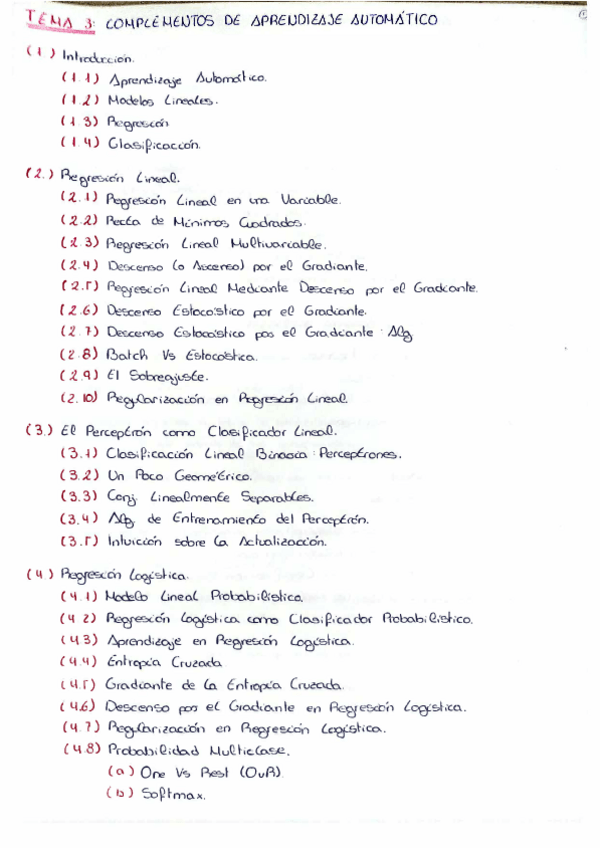 TEMA 3: COMPLEMENTOS DE APRENDIZAJE AUTOMÁTICO
(1) Introducción.
(1.1) Aprendizaje Automático.
(1.2) Modelos Lineales.
(1.3) Regresión
(1.4) Clasificación.
(2.) Regresión Lineal.
(2.1) Regresión Lineal en una Variable.
(2.2) Recta de Mínimos Cuadrados.
(2.3) Regresión Lineal Multivariable.
(2.4) Descenso (o Ascenso) por el Gradiante.
(2.5) Regresión Lineal Mediante Descenso por el Gradiante.
(2.6) Descenso Estocástico por el Gradiante.
(2.7) Descenso Estocástico por el Gradiante: Alg
(2.8) Batch Vs Estocástica.
(2.9) El Sobreajuste.
(2.10) Regularización en Regresión Lineal.
(3.) El Perceptrón como Clasificador Lineal.
(3.1) Clasificación Lineal Binaria: Perceptrones.
(3.2) Un Poco Geométrico.
(3.3) Conj. Linealmente Separables.
(3.4) Alg. de Entrenamiento del Perceptrón.
(3.5) Intuición sobre la Actualización.
(4.) Regresión Logística.
(4.1) Modelo Lineal Probabilístico.
(4.2) Regresión Logística como Clasificador Probabilístico.
(4.3) Aprendizaje en Regresión Logística.
(4.4) Entropía Cruzada
(4.5) Gradiante de la Entropía Cruzada.
(4.6) Descenso por el Gradiante en Regresión Logística.
(4.7) Regularización en Regresión Logística.
(4.8) Probabilidad Multiclase.
(a) One Vs Rest (OvR).
(b) Softmax.